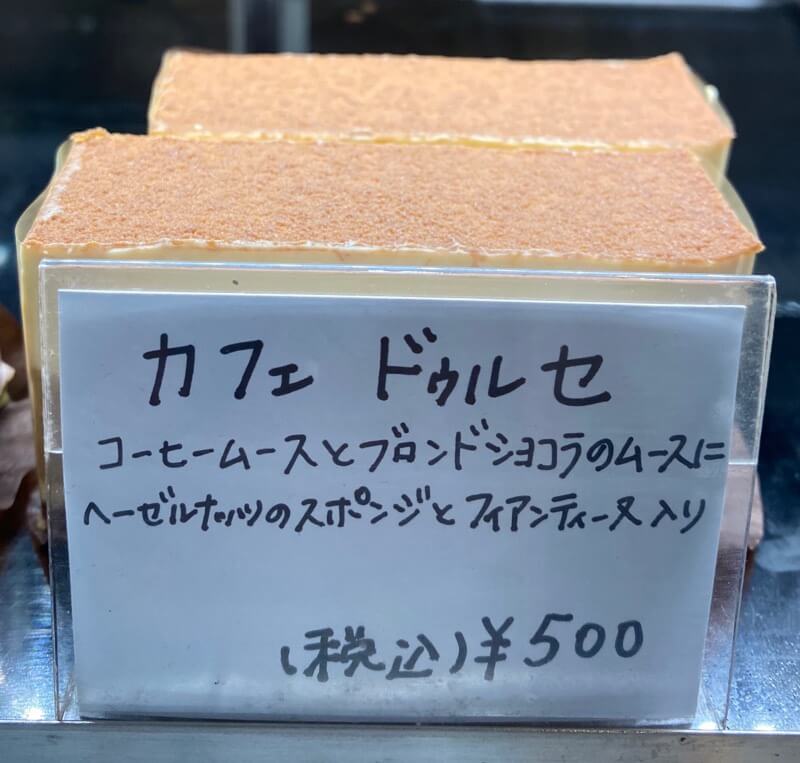 カフェ ドゥルセ
コーヒームースとブロンドショコラのムースに
ヘーゼルナッツのスポンジとフィアンティーヌ入り
(税込)¥500